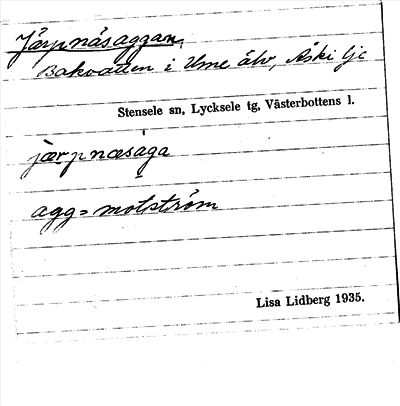 Järpnäsaggan,
Bakvatten i Ume älv, Åskilje
Stensele sn, Lycksele tg, Västerbottens l.
jærpnæsaga
agg = motström
Lisa Lidberg 1935.